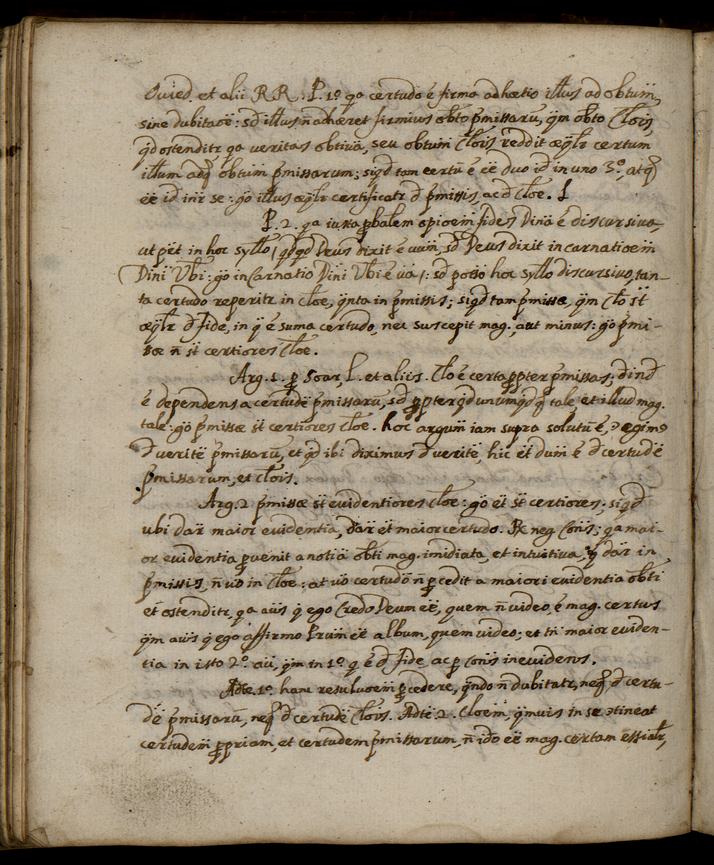 Ovied. et alii RR. P. 1º qa certudo é firma adhætio illtus ad obtum̃,
sine dubitaoẽ: sd̃ illtus ñ adhæret firmius obto p̃missarũ, qm̃ obto Clõis,
qd̃ ostenditr qa veritas obtiva, seu obtum̃ Clõis reddit æqlr certum
illum adq̃ obtum̃ p̃missarum; siqd̃ tam certũ é eẽ duo id̃ in uno 3º, atq̃
eẽ id̃ intr se: gõ illtus æqlr certificatr d̃ p̃missis, ac d̃ Cloe.
P. 2. qa iuxta pbalem opioem̃ fides Dina é discursiva,
ut pẽt in hoc syllo / qdqd̃ Deus dixit é vum̃, sd̃ Deus dixit incarnatioem̃
Dini Vbi: gõ incarnatio Dini Vbi é va /: sd̃ posito hoc syllo discursivo, tan-
ta certudo reperitr in Cloe, qnta in p̃missis; siqd̃ tam p̃missæ, qm̃ Clo st̃
æqlr d̃ fide, in q̃ é suma certudo, nec suscepit mag., aut minus: gõ p̃mi-
ssæ ñ st̃ certiores Cloe.
Arg. 1. p Soar. L. et aliis. Clo é certa ppter p̃missas; d̃ ind̃
é dependens a certudẽ p̃missarũ, sd̃ ppter qd̃ unumqd̃q̃ tale et illud mag.
tale: gõ p̃missæ st̃ certiores Cloe. hoc argum̃ iam supra solutũ é, egim9
d̃ veritẽ p̃missarũ, et qd̃ ibi diximus d̃ veritẽ, hic et dum̃ é d̃ certudẽ
p̃missarum, et Clõis.
Arg. 2 p̃missæ st̃ evidentiores Cloe: gõ et st̃ certiores. siqd̃
ubi datr maior evidentia, datr et maior certudo. R. neg. Consi; qa mai-
or evidentia pvenit a notia obti mag. imidiata, et intuitiva, q̃ datr in
p̃missis, ñ vo in Cloe: at vo certudo ñ pcedit a maiori evidentia obti
et ostenditr, qa aus q̃ ego Credo Deum eẽ, quem ñ video, é mag. certus
qm̃ aus q̃ ego affirmo Prum̃ eẽ album, quem video; et tñ maior eviden-
tia in isto 2º au, qm̃ in 1º q é d̃ fide, ac p Consi inevidens.
Adte. 1º hanc resolvoem̃ pcedere, qndo ñ dubitatr, neq̃ d̃ certu-
dẽ p̃missarũ, neq̃ d̃ certudẽ Clõis. Adte 2. Cloem̃, qmvis in se ↄtineat
certudem̃ ppriam, et certudem p̃missarum, ñ ido eẽ mag. certam essialr,